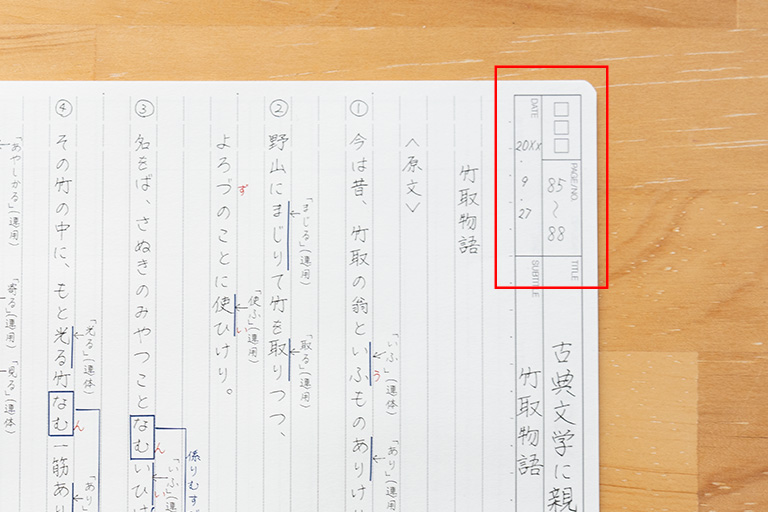 PAGE/NO.
85〜88
TITLE
古典文学に親
DATE
20XX.9.27
SUBTITLE
竹取物語
竹取物語
〈原文〉
「いふ」(連体)
「あり」(連用)
う
①今は昔、竹取の翁といふものありけ
「まじる」(連用)
「取る」(連用)
②野山にまじりて竹を取りつつ、
「使ふ」(連用)
ず
い
よろづのことに使ひけり。
係りむすび
「いふ」(連
ん
い
③名をば、さぬきのみやつことなむいひけ
「光る」(連体)
「あり」
ん
④その竹の中に、もと光る竹なむ一筋あり
「あやしがる」(連用)
「寄る」(連用)
「見る」(連体)